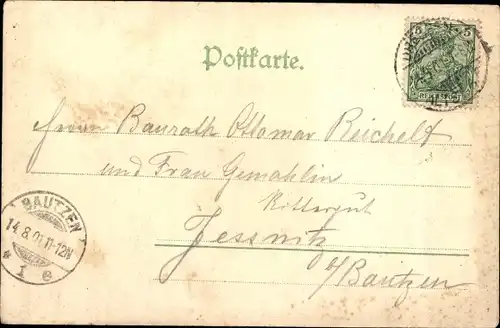 Postkarte.
5 5
REICHSPOST
Herrn Baurath Ottomar Reichelt
und Frau Gemahlin
Rittergut
Jessnitz
b/Bautzen
BAUTZEN
14.8.01.11-12V
* 1 e